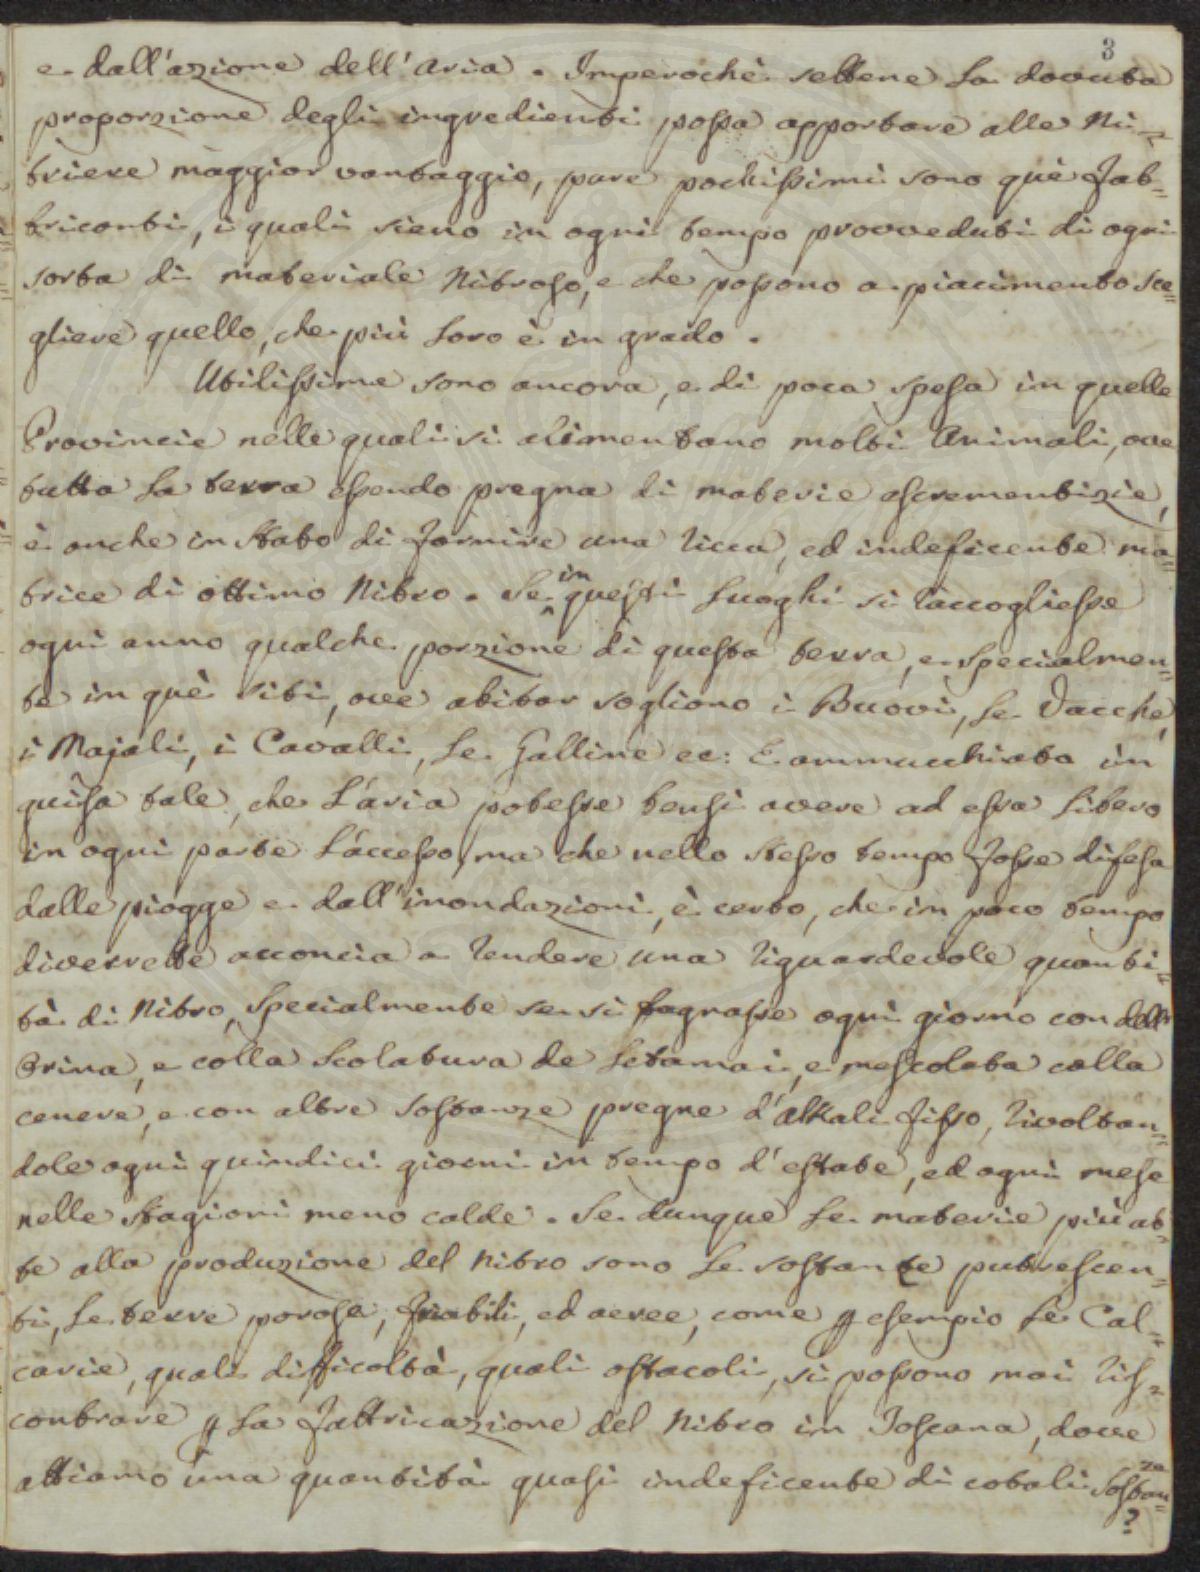 3
e dall'azione dell'Aria. Imperochè sebbene la dovuta
proporzione degli ingredienti possa apportare alle Ni=
triere maggior vantaggio, pure pochissimi sono què Fab=
bricanti, i quali sieno in ogni tempo provveduti di ogni
sorta di materiale Nitroso, e che possono a piacimento sce=
gliere quello, che più loro è in grado.
Utilissime sono ancora, e di poca spesa in quelle
Provincie nelle quali si alimentano molti Animali, ove
tutta la terra essendo pregna di materie escrementizie,
è anche in stato di fornire una ricca, ed indeficente ma=
trice di ottimo Nitro. Se in questi luoghi si raccogliesse
ogni anno qualche porzione di questa terra, e specialmen=
te in què siti, ove abitar sogliono i Buovi, le Vacche,
i Majali, i Cavalli, le Galline ec: E ammucchiata in
guisa tale, che l'aria potesse bensì avere ad essa libero
in ogni parte l'accesso, ma che nello stesso tempo fosse difesa
dalle piogge e dall'inondazioni, è certo, che in poco tempo
diverrebbe acconcia a rendere una riguardevole quanti=
tà di Nitro, specialmente se si bagnasse ogni giorno con dell'
Orina, e colla scolatura de letamai, e mescolata colla
cenere, e con altre sostanze pregne d'alkali fisso, rivoltan=
dole ogni quindici giorni in tempo d'estate, ed ogni mese
nelle stagioni meno calde. Se dunque le materie più at=
te alla produzione del Nitro sono le sostanze putrescen=
ti, le terre porose, friabili, ed aeree, come p esempio le Cal=
carie, quali difficoltà, quali ostacoli, si possono mai ris=
contrare p la fabbricazione del Nitro in Toscana, dove
abbiamo una quantità quasi indeficente di cotali sostan=
ze
?